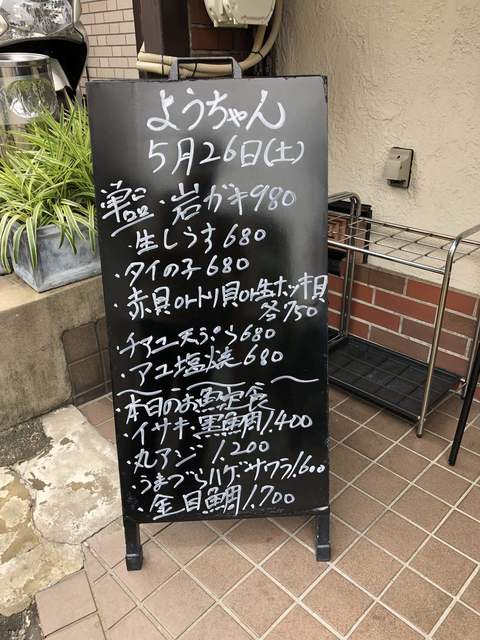 ようちゃん
5月26日(土)
・岩ガキ980
・生しらす680
・タイの子680
・赤貝orトリ貝or生ホッキ貝
各750
・チアユ天ぷら680
・アユ塩焼680
・本日のお魚定食
・イサキ、黒鯛1,400
・丸アジ 1,200
・うまづらハゲ・サワラ1,600
・金目鯛1,700